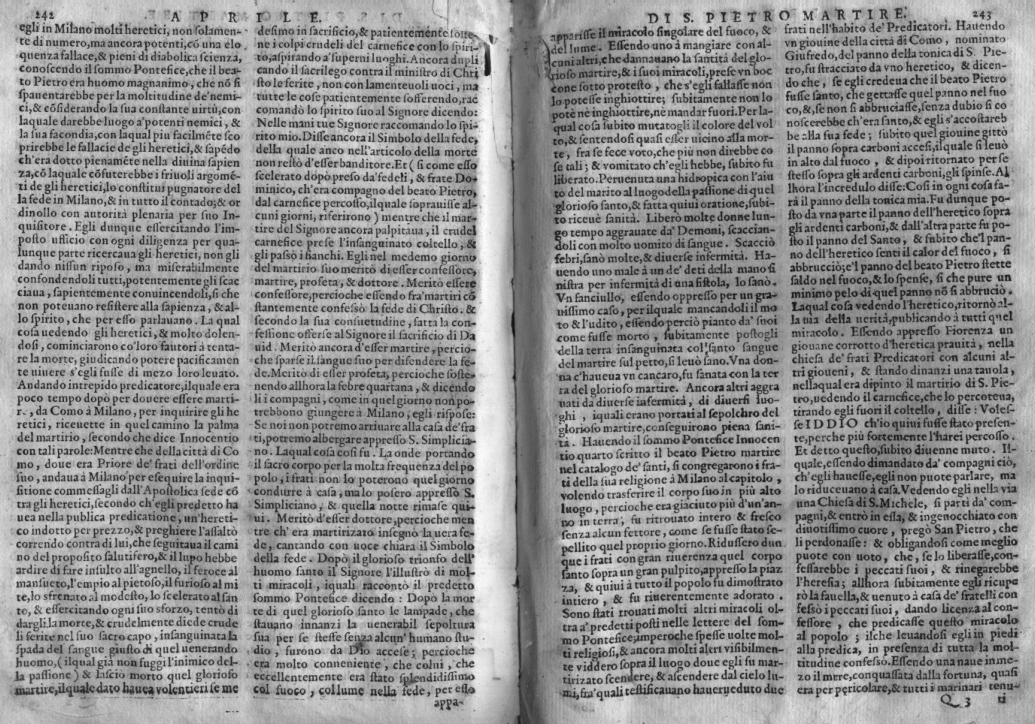 242
APRILE.
egli in Milano molti heretici, non solamen-
te di numero, ma ancora potenti, cō una elo
quenza fallace, & pieni di diabolica scienza,
conoscendo il sommo Pontefice, che il bea-
to Pietro era huomo magnanimo, che nō si
spauentarebbe per la moltitudine de'nemi-
ci, & cōsiderando la sua constante uirtù, con
laquale darebbe luogo a'potenti nemici, &
la sua facondia, con laqual piu facilmēte sco
prirebbe le fallacie de gli heretici, & sapēdo
ch'era dotto pienamēte nella diuina sapien
za, cō laquale cōfuterebbe i friuoli argomē-
ti de gli heretici, lo constituì pugnator del
la fede in Milano, & in tutto il contado; & or
dinollo con autorità plenaria per suo In-
quisitore. Egli dunque essercitando l'im-
posto ufficio con ogni diligenza per qua-
lunque parte ricercaua gli heretici, non gli
dando nissun riposo, ma miserabilmente
confondendoli tutti, potentemente gli scac
ciaua, sapientemente conuincendoli, si che
non poteuano resistere alla sapienza, & al-
lo spirito, che per esso parlauano. La qual
cosa uedendo gli heretici, & molto dolen-
dosi, cominciarono co'loro fautori à tenta-
re la morte, giudicando potere pacificamen
te uiuere s'egli fusse di mezo loro leuato.
Andando intrepido predicatore, ilquale era
poco tempo dopò per douere essere marti-
re, da Como à Milano, per inquirire gli he
retici, riceuette in quel camino la palma
del martirio, secondo che dice Innocentio
con tali parole: Mentre che della città di Co
mo, doue era Priore de' frati dell'ordine
suo, andaua à Milano per esequire la inqui-
sitione commessagli dall'Apostolica sede cō
tra gli heretici, secondo ch'egli predetto ha
uea nella publica predicatione, un'hereti-
co indotto per prezzo, & preghiere l'assaltò
correndo contra di lui, che seguitaua il cami
no del proposito salutifero, & il lupo hebbe
ardire di fare insulto all'agnello, il feroce al
mansueto, l'empio al pietoso, il furioso al mi
te, lo sfrenato al modesto, lo scelerato al san
to, & essercitando ogni suo sforzo, tentò di
dargli la morte, & crudelmente diede crude
li ferite nel suo sacro capo, insanguinata la
spada del sangue giusto di quel uenerando
huomo, (ilqual già non fuggì l'inimico del-
la passione) & lasciò morto quel glorioso
martire, ilquale dato hauea volentieri se me
desimo in sacrificio, & patientemente soste
ne i colpi crudeli del carnefice con lo spiri-
to, aspirando a'superni luoghi. Ancora dupli
cando il sacrilego contra il ministro di Chri
sto le ferite, non con lamenteuoli uoci, ma
tutte le cose patientemente sofferendo, rac
comandò lo spirito suo al Signore dicendo:
Nelle mani tue Signore raccomando lo spi-
rito mio. Disse ancora il Simbolo della fede,
della quale anco nell'articolo della morte
non restò d'esser banditore. Et (si come esso
scelerato dopò preso da'fedeli, & frate Do
minico, ch'era compagno del beato Pietro,
dal carnefice percosso, ilquale soprauisse al-
cuni giorni, riferirono) mentre che il mar-
tire del Signore ancora palpitaua, il crudel
carnefice prese l'insanguinato coltello, &
gli passò i fianchi. Egli nel medemo giorno
del martirio suo meritò di esser confessore,
martire, profeta, & dottore. Meritò essere
confessore, percioche essendo fra'martiri cō
stantemente confessò la fede di Christo. &
secondo la sua consuetudine, fatta la con-
fessione offerse al Signore il sacrificio di Da
uid. Meritò ancora d'esser martire, percio-
che sparse il sangue suo per difendere la fe-
de. Meritò di esser profeta, percioche soste-
nendo allhora la febre quartana, & dicendo
li i compagni, come in quel giorno non po-
trebbono giungere à Milano, egli rispose:
Se noi non potremo arriuare alla casa de'fra
ti, potremo albergare appresso S. Simplicia-
no. Laqual cosa così fu. La onde portando
il sacro corpo per la molta frequenza del po
polo, i frati non lo poterono quel giorno
condurre à casa, ma lo posero appresso S.
Simpliciano, & quella notte rimase qui-
ui. Meritò d'esser dottore, percioche men
tre ch'era martirizato insegnò la uera fe-
de, cantando con uoce chiara il Simbolo
della fede. Dopò il glorioso trionfo dell'
huomo santo il Signore l'illustrò di mol-
ti miracoli, iquali raccontò il predetto
sommo Pontefice dicendo: Dopò la mor
te di quel glorioso santo le lampade, che
stauano innanzi la uenerabil sepoltura
sua per se stesse senza alcun'humano stu-
dio, furono da Dio accese; percioche
era molto conneniente, che colui, che
eccellentemente era stato splendidissimo
col fuoco, col lume nella fede, per esso
appa-
DI S. PIETRO MARTIRE.
243
apparisse il miracolo singolare del fuoco, &
del lume. Essendo uno à mangiare con al-
cuni altri, che dannauano la santità del glo-
rioso martire, & i suoi miracoli, prese vn boc
cone sotto protesto, che s'egli fallasse non
lo potesse inghiottire; subitamente non lo
potè ne inghiottire, ne mandar fuori. Per la-
qual cosa subito mutatogli il colore del vol
to, & sentendosi quasi esser uicino alla mor-
te, fra se fece voto, che più non direbbe co
se tali; & vomitato ch'egli hebbe, subito fu
liberato. Peruenuta vna hidropica con l'aiu
to del marito al luogo della passione di quel
glorioso santo, & fatta quiui oratione, subi-
to riceuè sanità. Liberò molte donne lun-
go tempo aggrauate da' Demoni, scaccian-
doli con molto uomito di sangue. Scacciò
febri, sanò molte, & diuerse infermità. Ha-
uendo uno male à un de' deti della mano si
nistra per infermità di una fistola, lo sanò.
Vn fanciullo, essendo oppresso per un gra-
uissimo caso, per ilquale mancandoli il mo
to & l'udito, essendo perciò pianto da' suoi
come fusse morto, subitamente postogli
della terra insanguinata col santo sangue
del martire sul petto, si leuò sano. Vna don-
na c'haueua vn cancaro, fu sanata con la ter
ra del glorioso martire. Ancora altri aggra
uati da diuerse infermità, di diuersi luo-
ghi, iquali erano portati al sepolchro del
glorioso martire, conseguirono piena sani-
tà. Hauendo il sommo Pontefice Innocen
tio quarto scritto il beato Pietro martire
nel catalogo de'santi, si congregarono i fra-
ti della sua religione à Milano al capitolo,
volendo trasferire il corpo suo in più alto
luogo, percioche era giaciuto più d'un'an-
no in terra, fu ritrouato intero & fresco
senza alcun fettore, come se fusse stato se-
pellito quel proprio giorno. Ridussero dun
que i frati con gran riuerenza quel corpo
santo sopra un gran pulpito, appresso la piaz
za, & quiui à tutto il popolo fu dimostrato
intiero, & fu riuerentemente adorato.
Sono stati trouati molti altri miracoli ol-
tra a'predetti posti nelle lettere del som-
mo Pontefice, imperoche spesse uolte mol-
ti religiosi, & ancora molti altri visibilmen-
te viddero sopra il luogo doue egli fu mar-
tirizato scendere, & ascendere dal cielo lu-
mi, fra'quali testificauano hauer ueduto due
frati nell'habito de' Predicatori. Hauendo
vn giouine della città di Como, nominato
Giufredo, del panno della tonica di S. Pie-
tro, fu stracciato da vno heretico, & dicen-
do che, se egli credeua che il beato Pietro
fusse santo, che gettasse quel panno nel fuo
co, &, se non si abbruciasse, senza dubio si co
noscerebbe ch'era santo, & egli s'accostareb
be alla sua fede; subito quel giouine gittò
il panno sopra carboni accesi, ilquale si leuò
in alto dal fuoco, & dipoi ritornato per se
stesso sopra gli ardenti carboni, gli spinse. Al
lhora l'incredulo disse: Così in ogni cosa fa-
rà il panno della tonica mia. Fu dunque po-
sto da vna parte il panno dell'heretico sopra
gli ardenti carboni, & dall'altra parte fu po-
sto il panno del Santo, & subito che'l pan-
no dell'heretico sentì il calor del fuoco, si
abbrucciò; e'l panno del beato Pietro stette
saldo nel fuoco, & lo spense, sì che pure un
minimo pelo di quel panno nō si abbruciò.
Laqual cosa vedendo l'heretico, ritornò al-
la uia della uerità, publicando à tutti quel
miracolo. Essendo appresso Fiorenza un
giouane corrotto d'heretica prauità, nella
chiesa de' frati Predicatori con alcuni al-
tri gioueni, & stando dinanzi una tauola,
nellaqual era dipinto il martirio di S. Pie-
tro, uedendo il carnefice, che lo percoteua,
tirando egli fuori il coltello, disse: Voles-
se IDDIO ch'io quiui fusse stato presen-
te, perche più fortemente l'harei percosso.
Et detto questo, subito diuenne muto. Il-
quale, essendo dimandato da' compagni ciò,
ch'egli hauesse, egli non puote parlare, ma
lo riduceuano à casa. Vedendo egli nella via
una Chiesa di S. Michele, si partì da' com-
pagni, & entrò in essa, & ingenocchiato con
diuotissimo cuore, pregò San Pietro, che
li perdonasse: & obligandosi come meglio
puote con uoto, che, se lo liberasse, con-
fessarebbe i peccati suoi, & rinegarebbe
l'heresia; allhora subitamente egli ricupe
rò la fauella, & uenuto à casa de' fratelli con
fessò i peccati suoi, dando licenza al con-
fessore, che predicasse questo miracolo
al popolo; ilche leuandosi egli in piedi
alla predica, in presenza di tutta la mol-
titudine confessò. Essendo una naue in me-
zo il mare, conquassata dalla fortuna, quasi
era per pericolare, & tutti i marinari tenu-
Q 3
ti